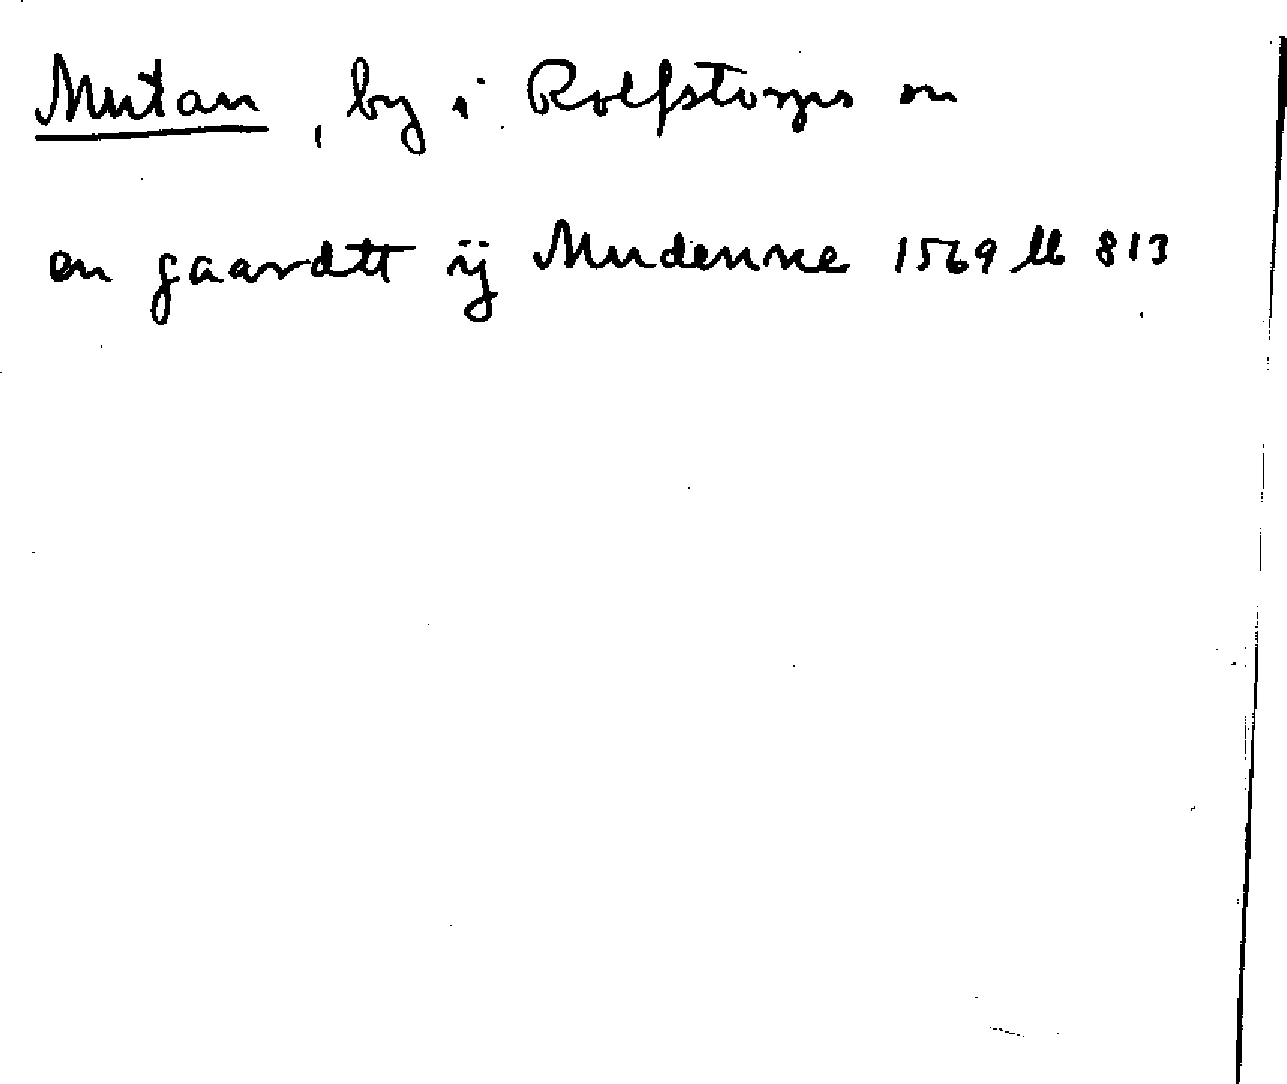 Mutan, by i Rolfstorps sn
en gaardtt ij Mudenne 1569 lb 813